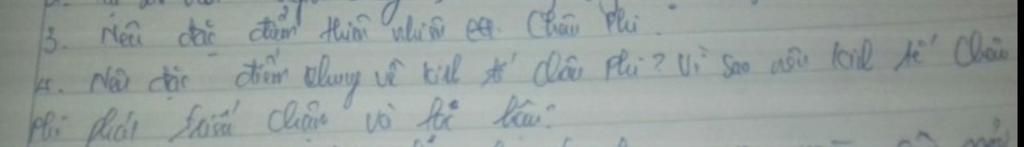 3. Nêu đặc điểm thiên nhiên Châu Phi.
4. Nêu đặc điểm chung về kinh tế Châu Phi? Vì sao nền kinh tế Châu
Phi phát triển chậm và